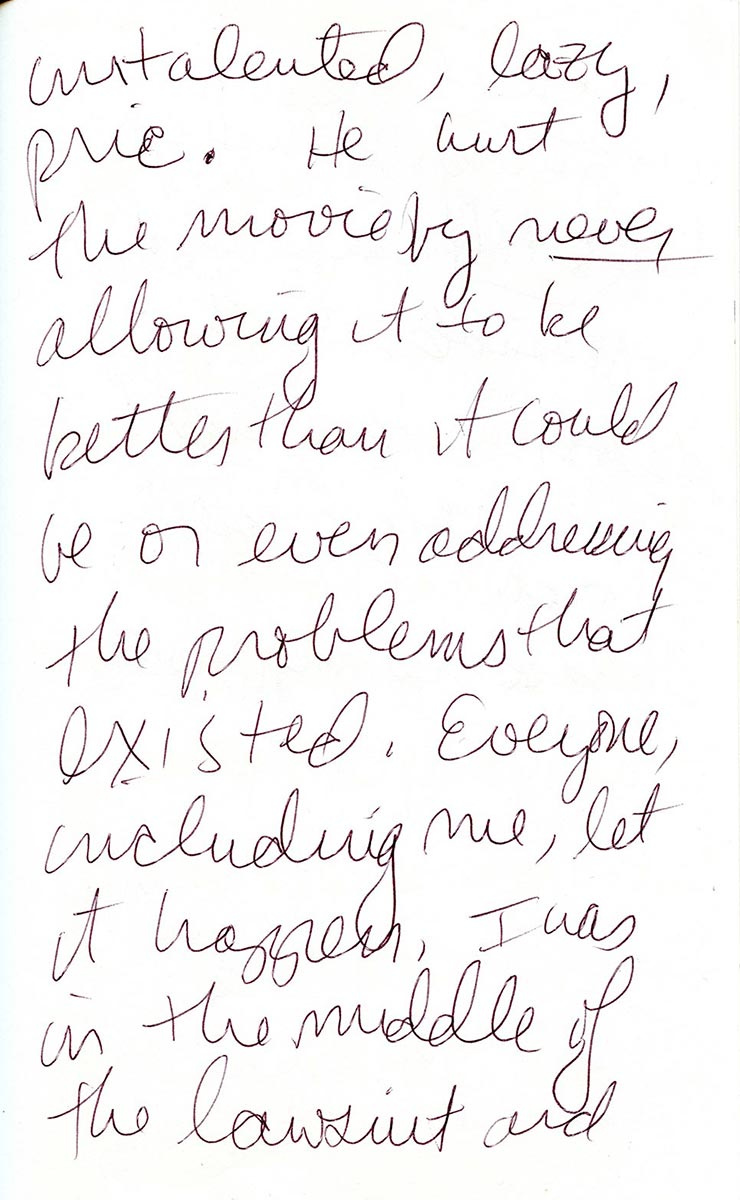 untalented, lazy,
pric. He hurt
the movie by never
allowing it to be
better than it could
be or even addressing
the problems that
existed. Everyone,
including me, let
it happen, I was
in the middle of
the lawsuit and